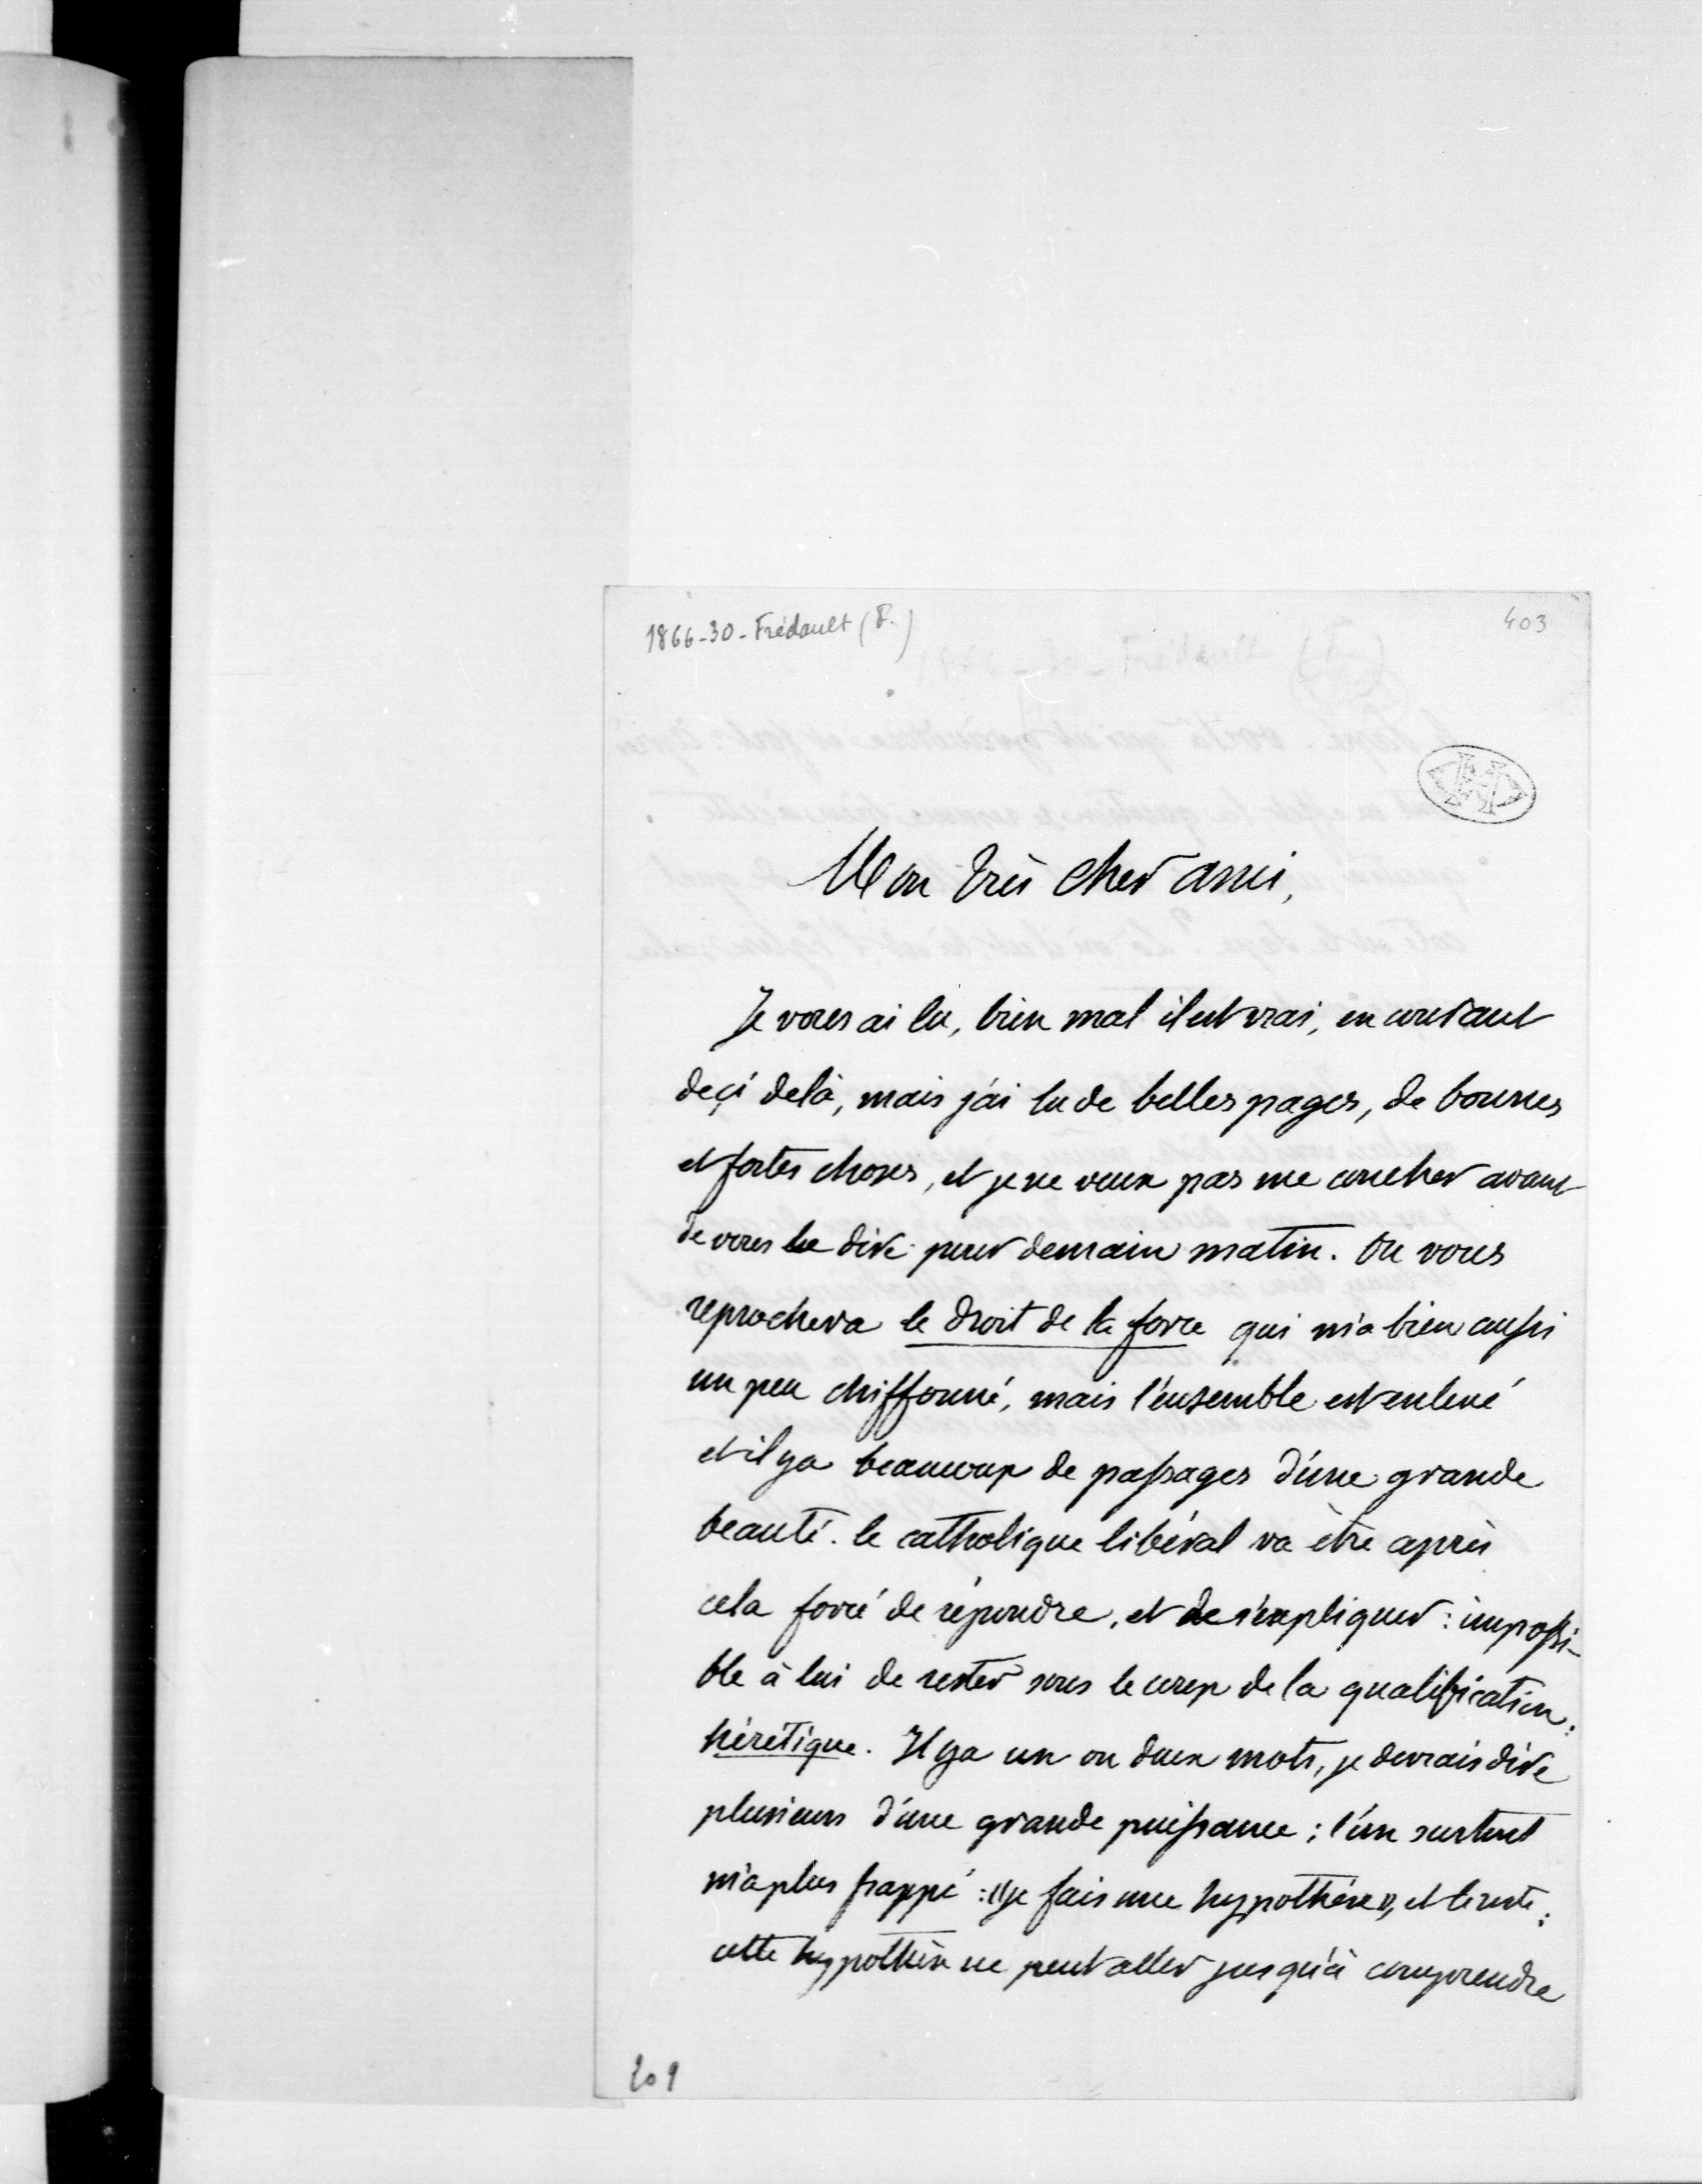 1866-30-Frédault (F.)
403
Mon très cher ami,
Je vous ai lu, bien mal il est vrai, en courant
deçi delà, mais j'ai lu de belles pages, de bonnes
et fortes choses, et je ne veux pas me coucher avant
de vous le dire pour demain matin. On vous
reprochera le droit de la force qui m'a bien aussi
un peu chiffonné, mais l'ensemble est enlevé
et il y a beaucoup de passages d'une grande
beauté. le catholique libéral va être après
cela forcé de répondre, et de s'expliquer : impossi-
ble à lui de rester sous le coup de la qualification :
hérétique. Il y a un ou deux mots, je devrais dire
plusieurs d'une grande puissance ; l'un surtout
m'a plus frappé : "je fais une hypothèse", et le reste ;
cette hypothèse ne peut aller jusqu'à comprendre
209